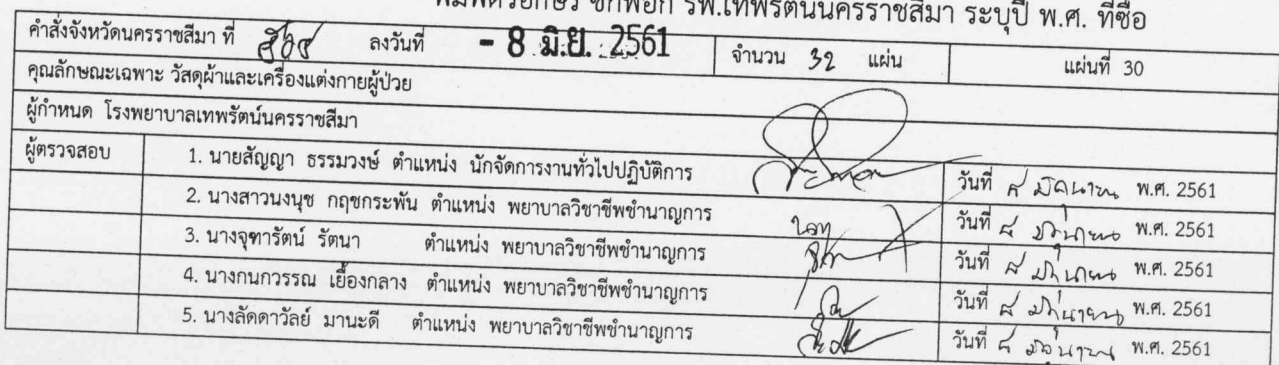 พิมพ์ตัวอักษร ซักฟอก รพ.เทพรัตน์นครราชสีมา ระบุปี พ.ศ. ที่ซื้อ
คำสั่งจังหวัดนครราชสีมา ที่ ลงวันที่ - 8 มิ.ย. 2561 จำนวน 32 แผ่น แผ่นที่ 30
คุณลักษณะเฉพาะ วัสดุผ้าและเครื่องแต่งกายผู้ป่วย
ผู้กำหนด โรงพยาบาลเทพรัตน์นครราชสีมา
ผู้ตรวจสอบ 1. นายสัญญา ธรรมวงษ์ ตำแหน่ง นักจัดการงานทั่วไปปฏิบัติการ วันที่ ๘ มิถุนายน พ.ศ. 2561
2. นางสาวนงนุช กฤชกระพัน ตำแหน่ง พยาบาลวิชาชีพชำนาญการ วันที่ ๘ มิถุนายน พ.ศ. 2561
3. นางจุฑารัตน์ รัตนา ตำแหน่ง พยาบาลวิชาชีพชำนาญการ วันที่ ๘ มิถุนายน พ.ศ. 2561
4. นางกนกวรรณ เยื้องกลาง ตำแหน่ง พยาบาลวิชาชีพชำนาญการ วันที่ ๘ มิถุนายน พ.ศ. 2561
5. นางลัดดาวัลย์ มานะดี ตำแหน่ง พยาบาลวิชาชีพชำนาญการ วันที่ ๘ มิถุนายน พ.ศ. 2561